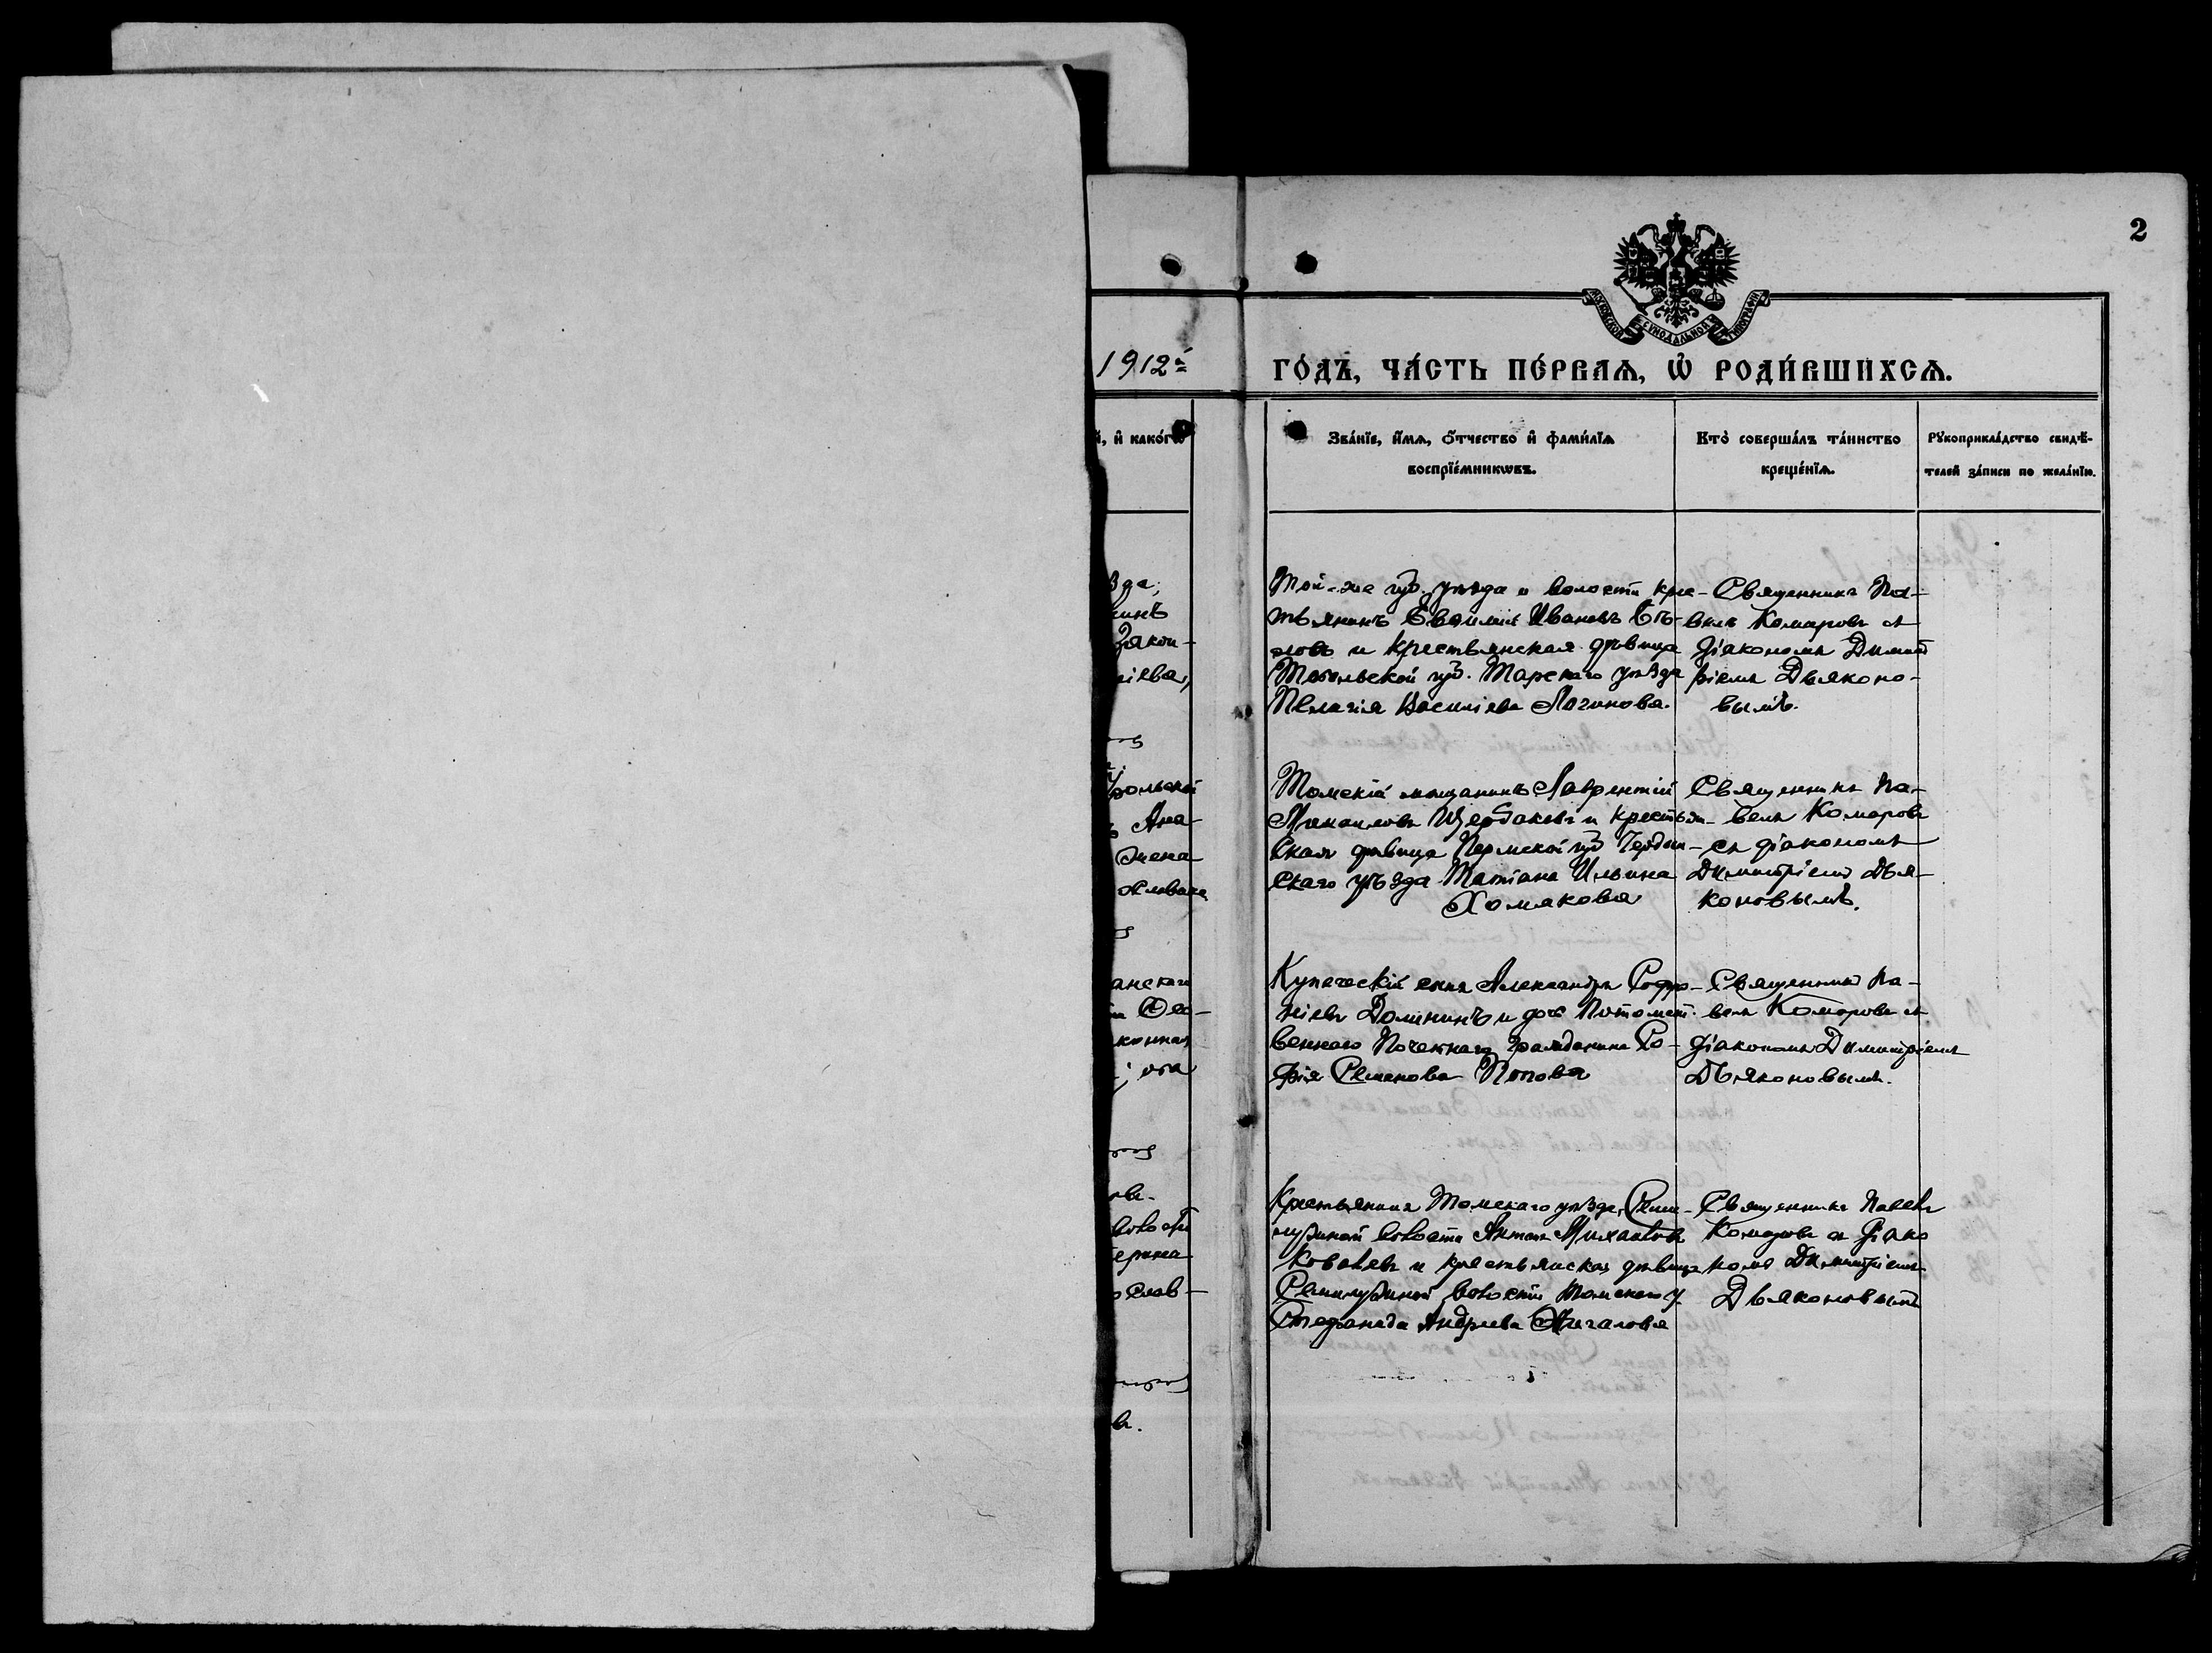 2
МОСКОВСКОЙ СУНОДАЛЬНОЙ ТИПОГРАФІИ
1912й
ГО́ДЪ, ЧА́СТЬ ПЕ́РВАѦ, Ѡ҆ РОДИ́ВШИХСѦ.
и҆ како́гѡ
Зва́нїе, и҆́мѧ, ѻ҆́тчество и҆ фами́лїѧ
воспрїе́мникѡвъ.
Кто̀ соверша́лъ та́инство
креще́нїѧ.
Рꙋкоприкла́дство свидѣ́-
телей за́писи по жела́нїю.
Закон-
Ана-
жена
анскаго
; оба
Той-же губ. уѣзда и волости кре-
стьянинъ Ивановъ Бѣ-
ловъ и крестьянская дѣвица
Тобольской губ. Тарскаго уѣзда
Пелагія Василіева Логинова.
Священникъ Па-
велъ Комаровъ съ
діакономъ Димит
ріемъ Дьяконо-
вымъ.
Томскій мѣщанинъ Лаврентій
Щербаковъ и крестьян-
ская дѣвица Пермской губ Чердын-
скаго уѣзда Татіана Ильина
Хомякова
Священникъ Па-
велъ Комаровъ
съ діакономъ
Димитріемъ Дья-
коновымъ.
Купеческій сынъ Александръ Софро-
ніевъ Долининъ и дочь Потомст-
веннаго Почетнаго Гражданина Со-
фія Семенова Попова
Священникъ Па-
велъ Комаровъ съ
діакономъ Димитріемъ
Дьяконовымъ.
Крестьянинъ Томскаго уѣзда, Семи-
лужной волости Антонъ Михаиловъ
Ковалевъ и крестьянская дѣвица
Семилужной волости Томскаго у.
Стефанида Андреева
Священникъ Павелъ
Комаровъ съ діако
номъ Димитріемъ
Дьяконовымъ